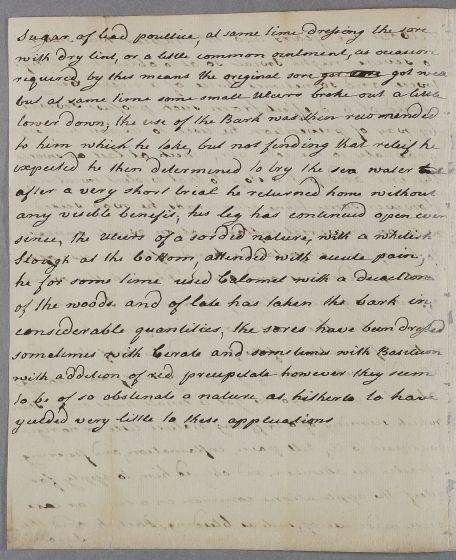 Sugar of lead poultice, at same time dressing the sore
with dry lint, or a little common ointment, as occasion
required, by this means the original sore got well
but at same time some small Ulcers broke out a little
lower down; the use of the Bark was then recommended
to him which he take, but not finding that releif he
expected he then determined to try the sea water
after a very short trial he returned home without
any visible benefit; his leg has continued open ever
since, the Ulcers of a sordid nature, with a whitish
Slough at the bottom, attended with acute pain,
he for some time used Calomel with a decoction
of the woods and of late has taken the bark in
considerable quantities, the sores have been dressed
sometimes with Cerate and sometimes with Basilicon
with addition of red precipitate however they seem
to be of so obstinate a nature as hitherto to have
yeilded very little to these applications